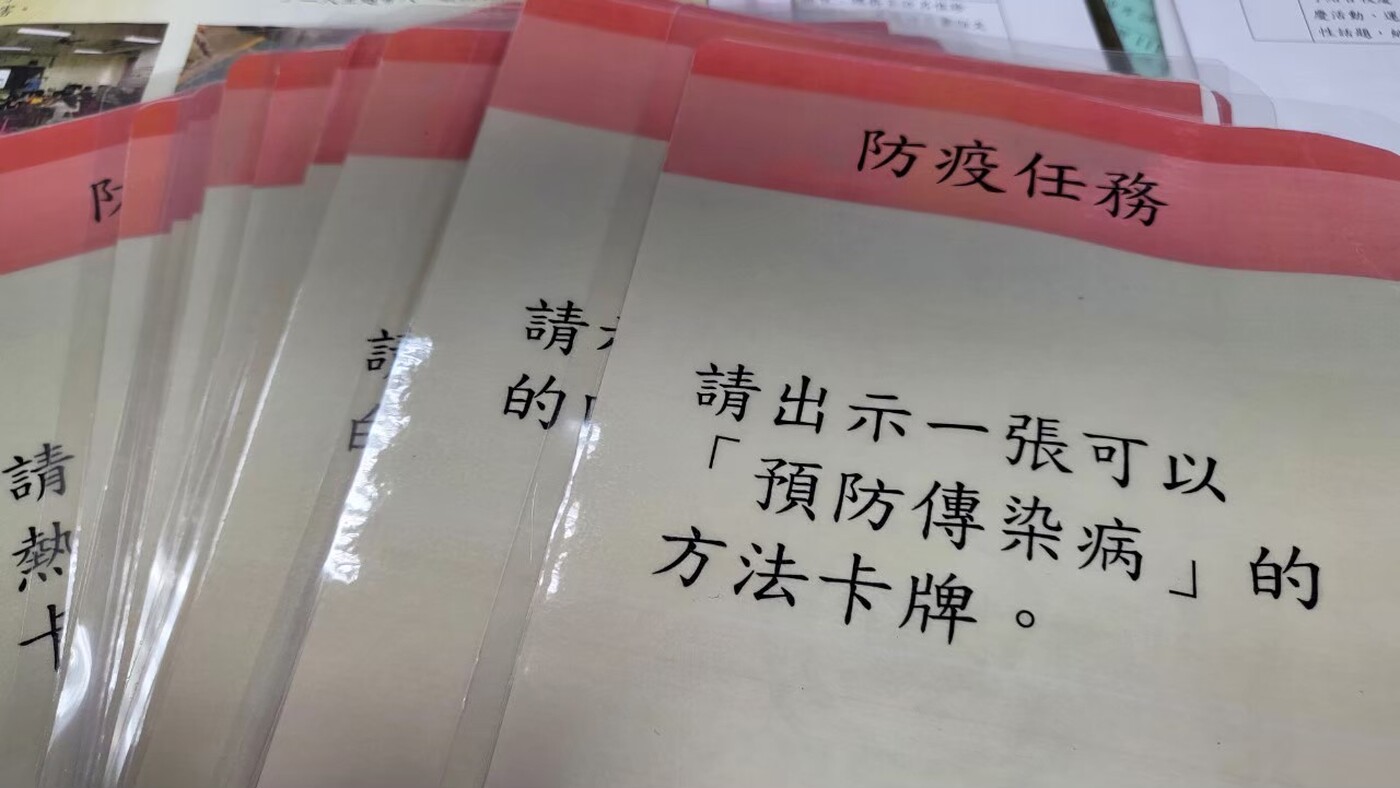 防疫任務
請出示一張可以
「預防傳染病」的
方法卡牌。
請
的
請
請
熱
卡
防
慶活動、運
性話題，
害。